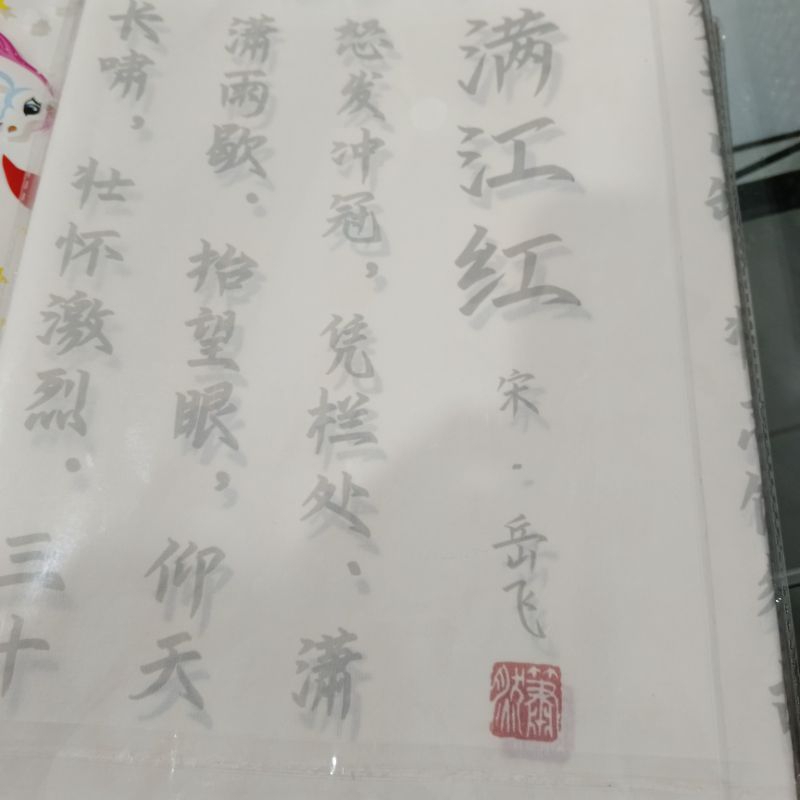 满江红
宋·岳飞
怒发冲冠，凭栏处·潇
潇雨歇·抬望眼，仰天
长啸，壮怀激烈·三十